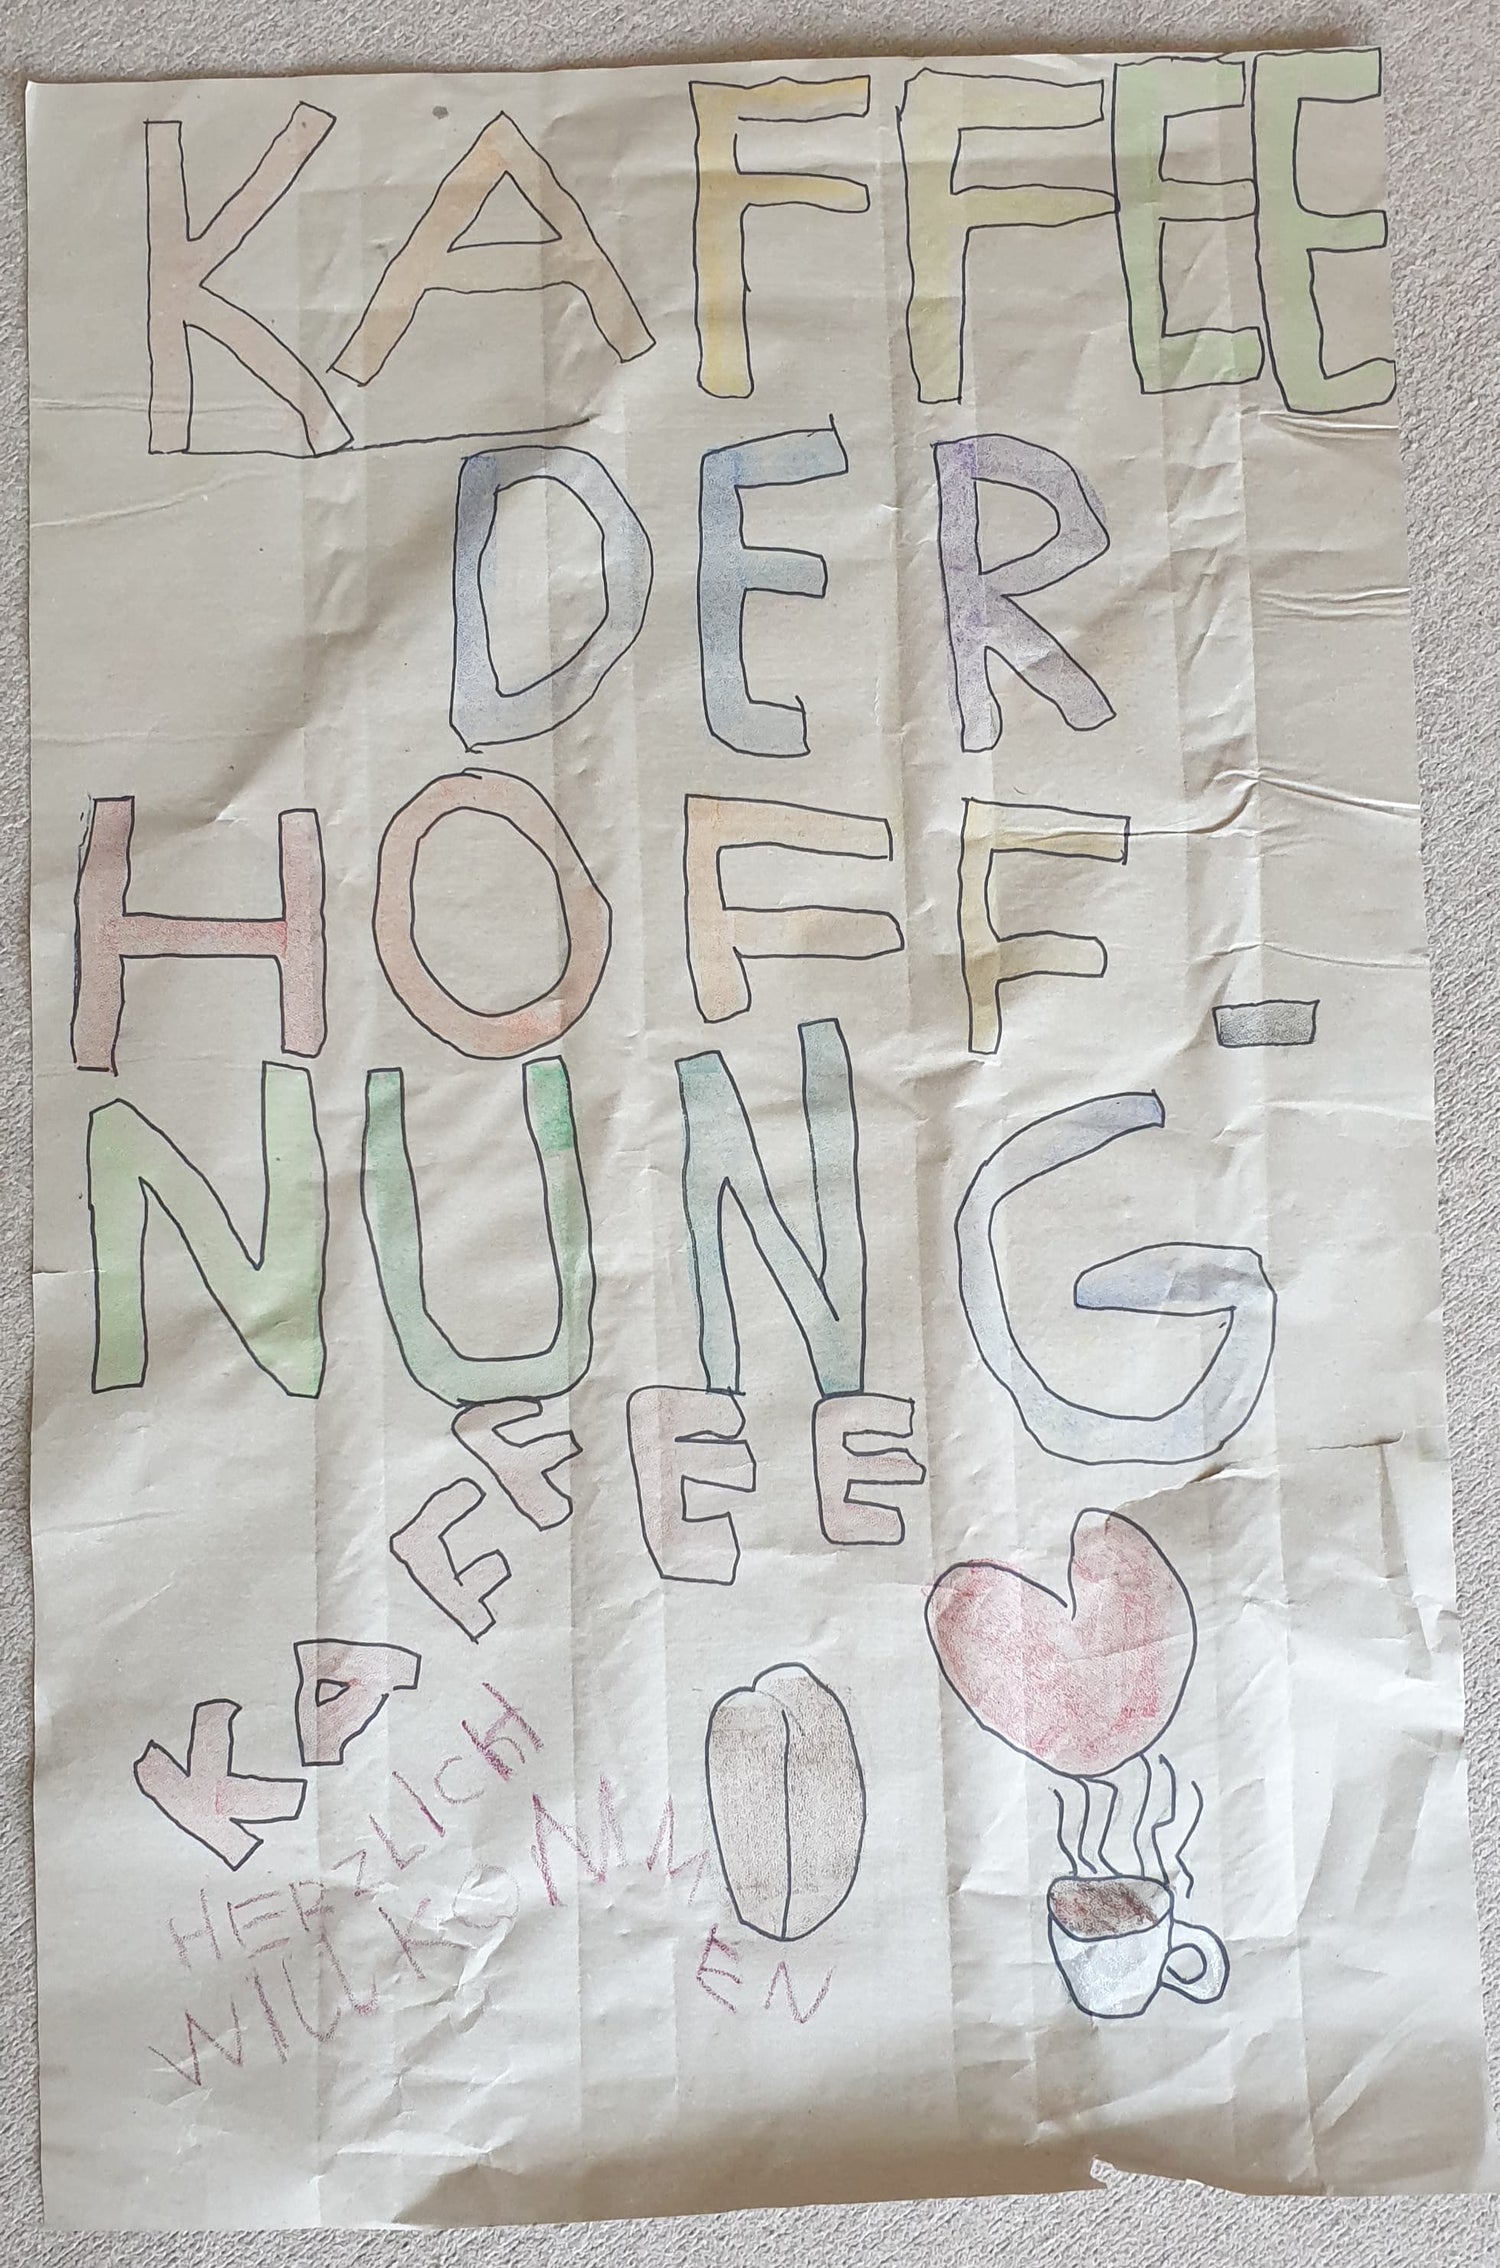 KAFFEE
DER
HOFF-
NUNG
KAFFEE
HERZLICH
WILLKOMMEN